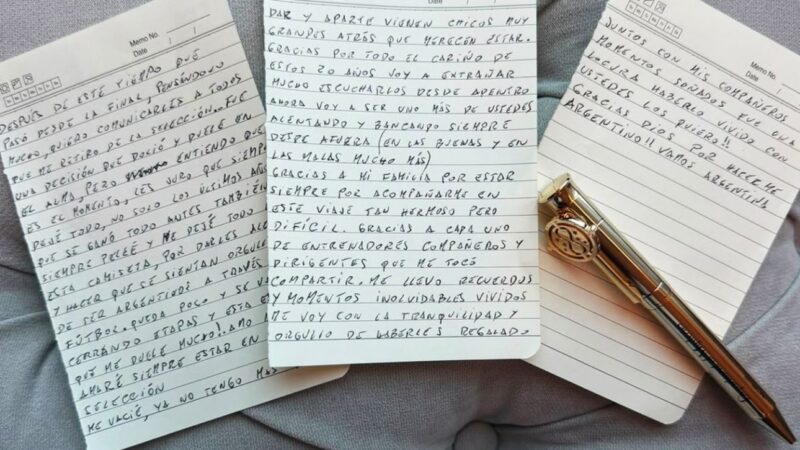 Memo No.
Date / /
DESPUÉS DE ESTE TIEMPO QUE
PASÓ DESDE LA FINAL, PENSÁNDOLO
MUCHO, QUIERO COMUNICARLES A TODOS
QUE ME RETIRO DE LA SELECCIÓN. FUE
UNA DECISIÓN QUE DOLIÓ Y DUELE EN
EL ALMA, PERO ENTIENDO QUE
ES EL MOMENTO, LES JURO QUE SIEMPRE
DEJÉ TODO, NO SOLO LOS ÚLTIMOS AÑOS
QUE SE GANÓ TODO ANTES TAMBIÉN
SIEMPRE PELEÉ Y ME DEJÉ TODO
ESTA CAMISETA, POR DARLES
Y HACER QUE SE SIENTAN
DE SER ARGENTINOS A TRAVÉS
FÚTBOL. QUEDA POCO Y SE
CERRANDO ETAPAS Y ESTA
QUE ME DUELE MUCHO!!
SIEMPRE ESTAR EN
SELECCIÓN
ME VACIÉ, YA NO TENGO MÁS
DAR Y APARTE VIENEN CHICOS MUY
GRANDES ATRÁS QUE MERECEN ESTAR.
GRACIAS POR TODO EL CARIÑO DE
ESTOS 20 AÑOS VOY A EXTRAÑAR
MUCHO ESCUCHARLOS DESDE ADENTRO
AHORA VOY A SER UNO MÁS DE USTEDES
ALENTANDO Y BANCANDO SIEMPRE
DESDE AFUERA (EN LAS BUENAS Y EN
LAS MALAS MUCHO MÁS)
GRACIAS A MI FAMILIA POR ESTAR
SIEMPRE POR ACOMPAÑARME EN
ESTE VIAJE TAN HERMOSO PERO
DIFÍCIL. GRACIAS A CADA UNO
DE ENTRENADORES COMPAÑEROS Y
DIRIGENTES QUE ME TOCÓ
COMPARTIR. ME LLEVO RECUERDOS
Y MOMENTOS INOLVIDABLES VIVIDOS
ME VOY CON LA TRANQUILIDAD Y
ORGULLO DE HABERLES REGALADO
Memo No.
Date / /
JUNTOS CON MIS COMPAÑEROS
MOMENTOS SOÑADOS FUE UNA
LOCURA HABERLO VIVIDO CON
USTEDES LOS QUIERO!!
GRACIAS DIOS POR HACERME
ARGENTINO!! VAMOS ARGENTINA